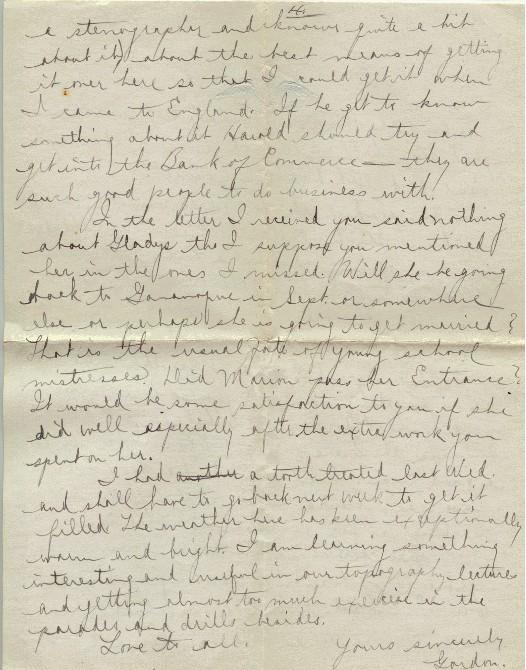 4.
a stenographer and knows quite a bit
about it) about the best means of getting
it over here so that I could get it when
I came to England. If he got to know
something about it Harold should try and
get into the Bank of Commerce — they are
such good people to do business with.
In the letter I received you said nothing
about Gladys tho I suppose you mentioned
her in the ones I missed. Will she be going
back to Gananoque in Sept. or somewhere
else or perhaps she is going to get married?
That is the usual fate of young school
mistresses. Did Marion pass her Entrance?
It would be some satisfaction to you if she
did well especially after the extra work you
spent on her.
I had another a tooth treated last Wed.
and shall have to go back next week to get it
filled. The weather here has been exceptionally
warm and bright. I am learning something
interesting and useful in our topography lectures
and getting almost too much exercise in the
parades and drills besides.
Love to all.
Yours sincerely
Gordon.